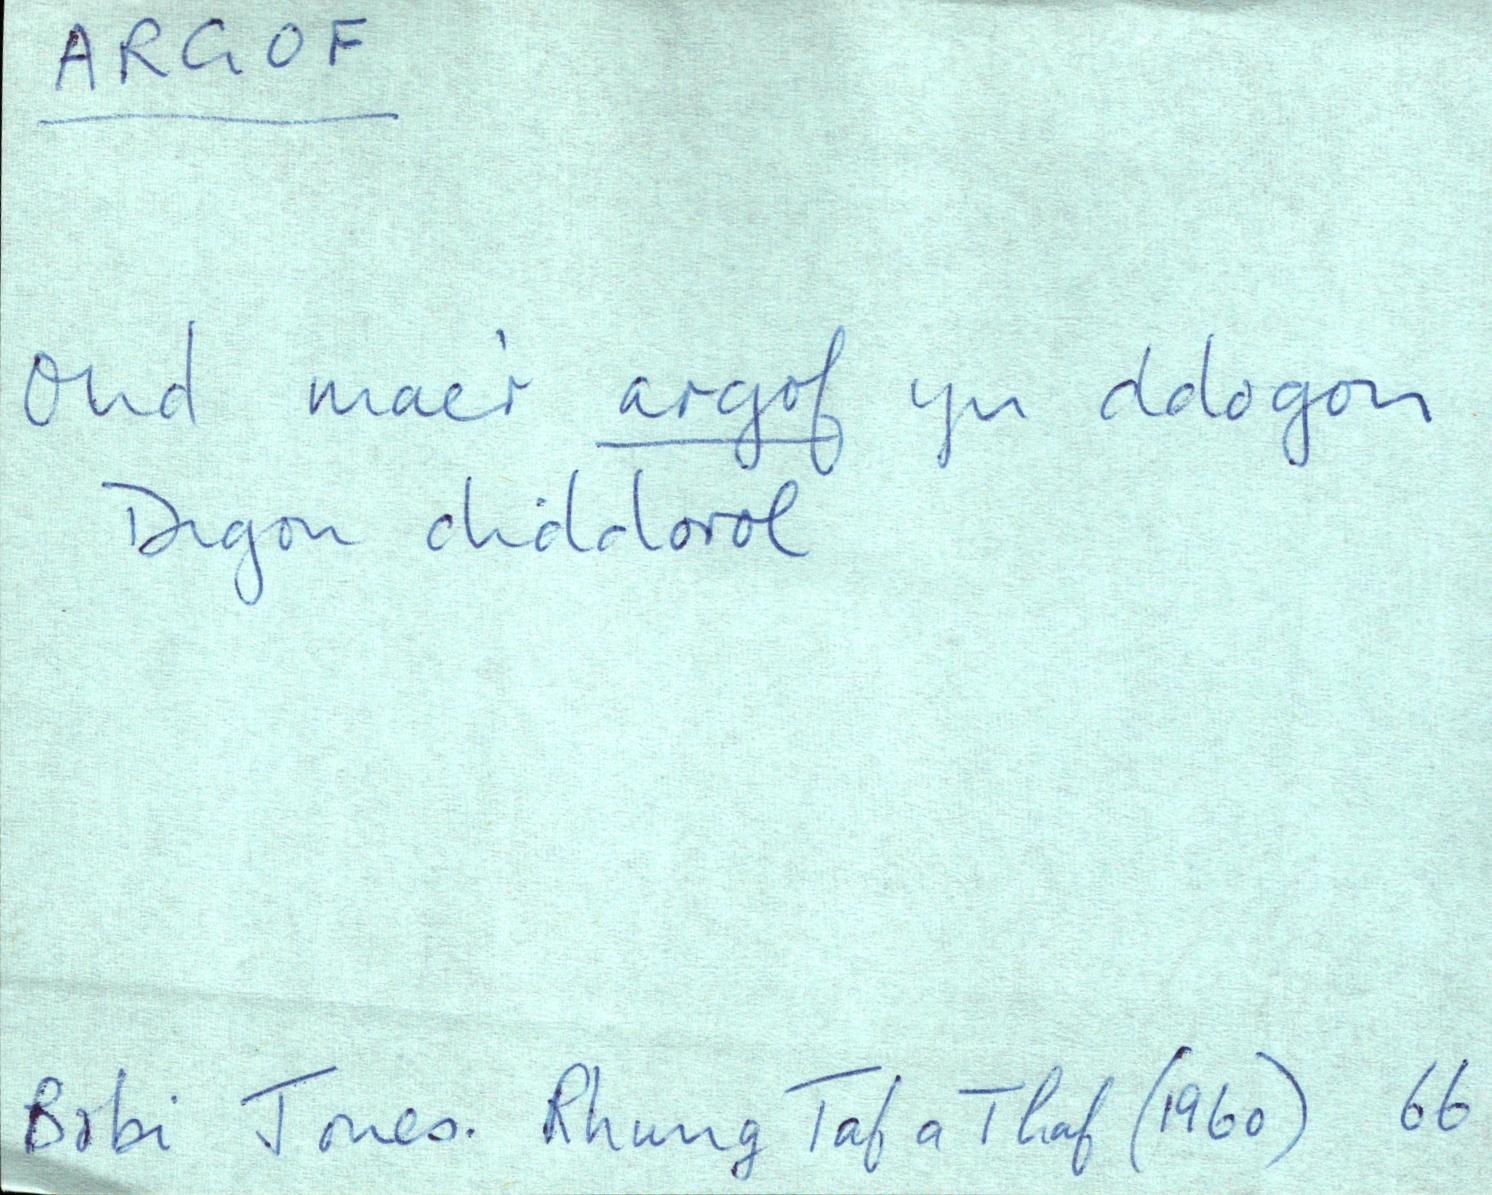 ARGOF
Ond mae'r argof yn ddogon
Digon diddorol
Bobi Jones. Rhwng Taf a Thaf (1960) 66